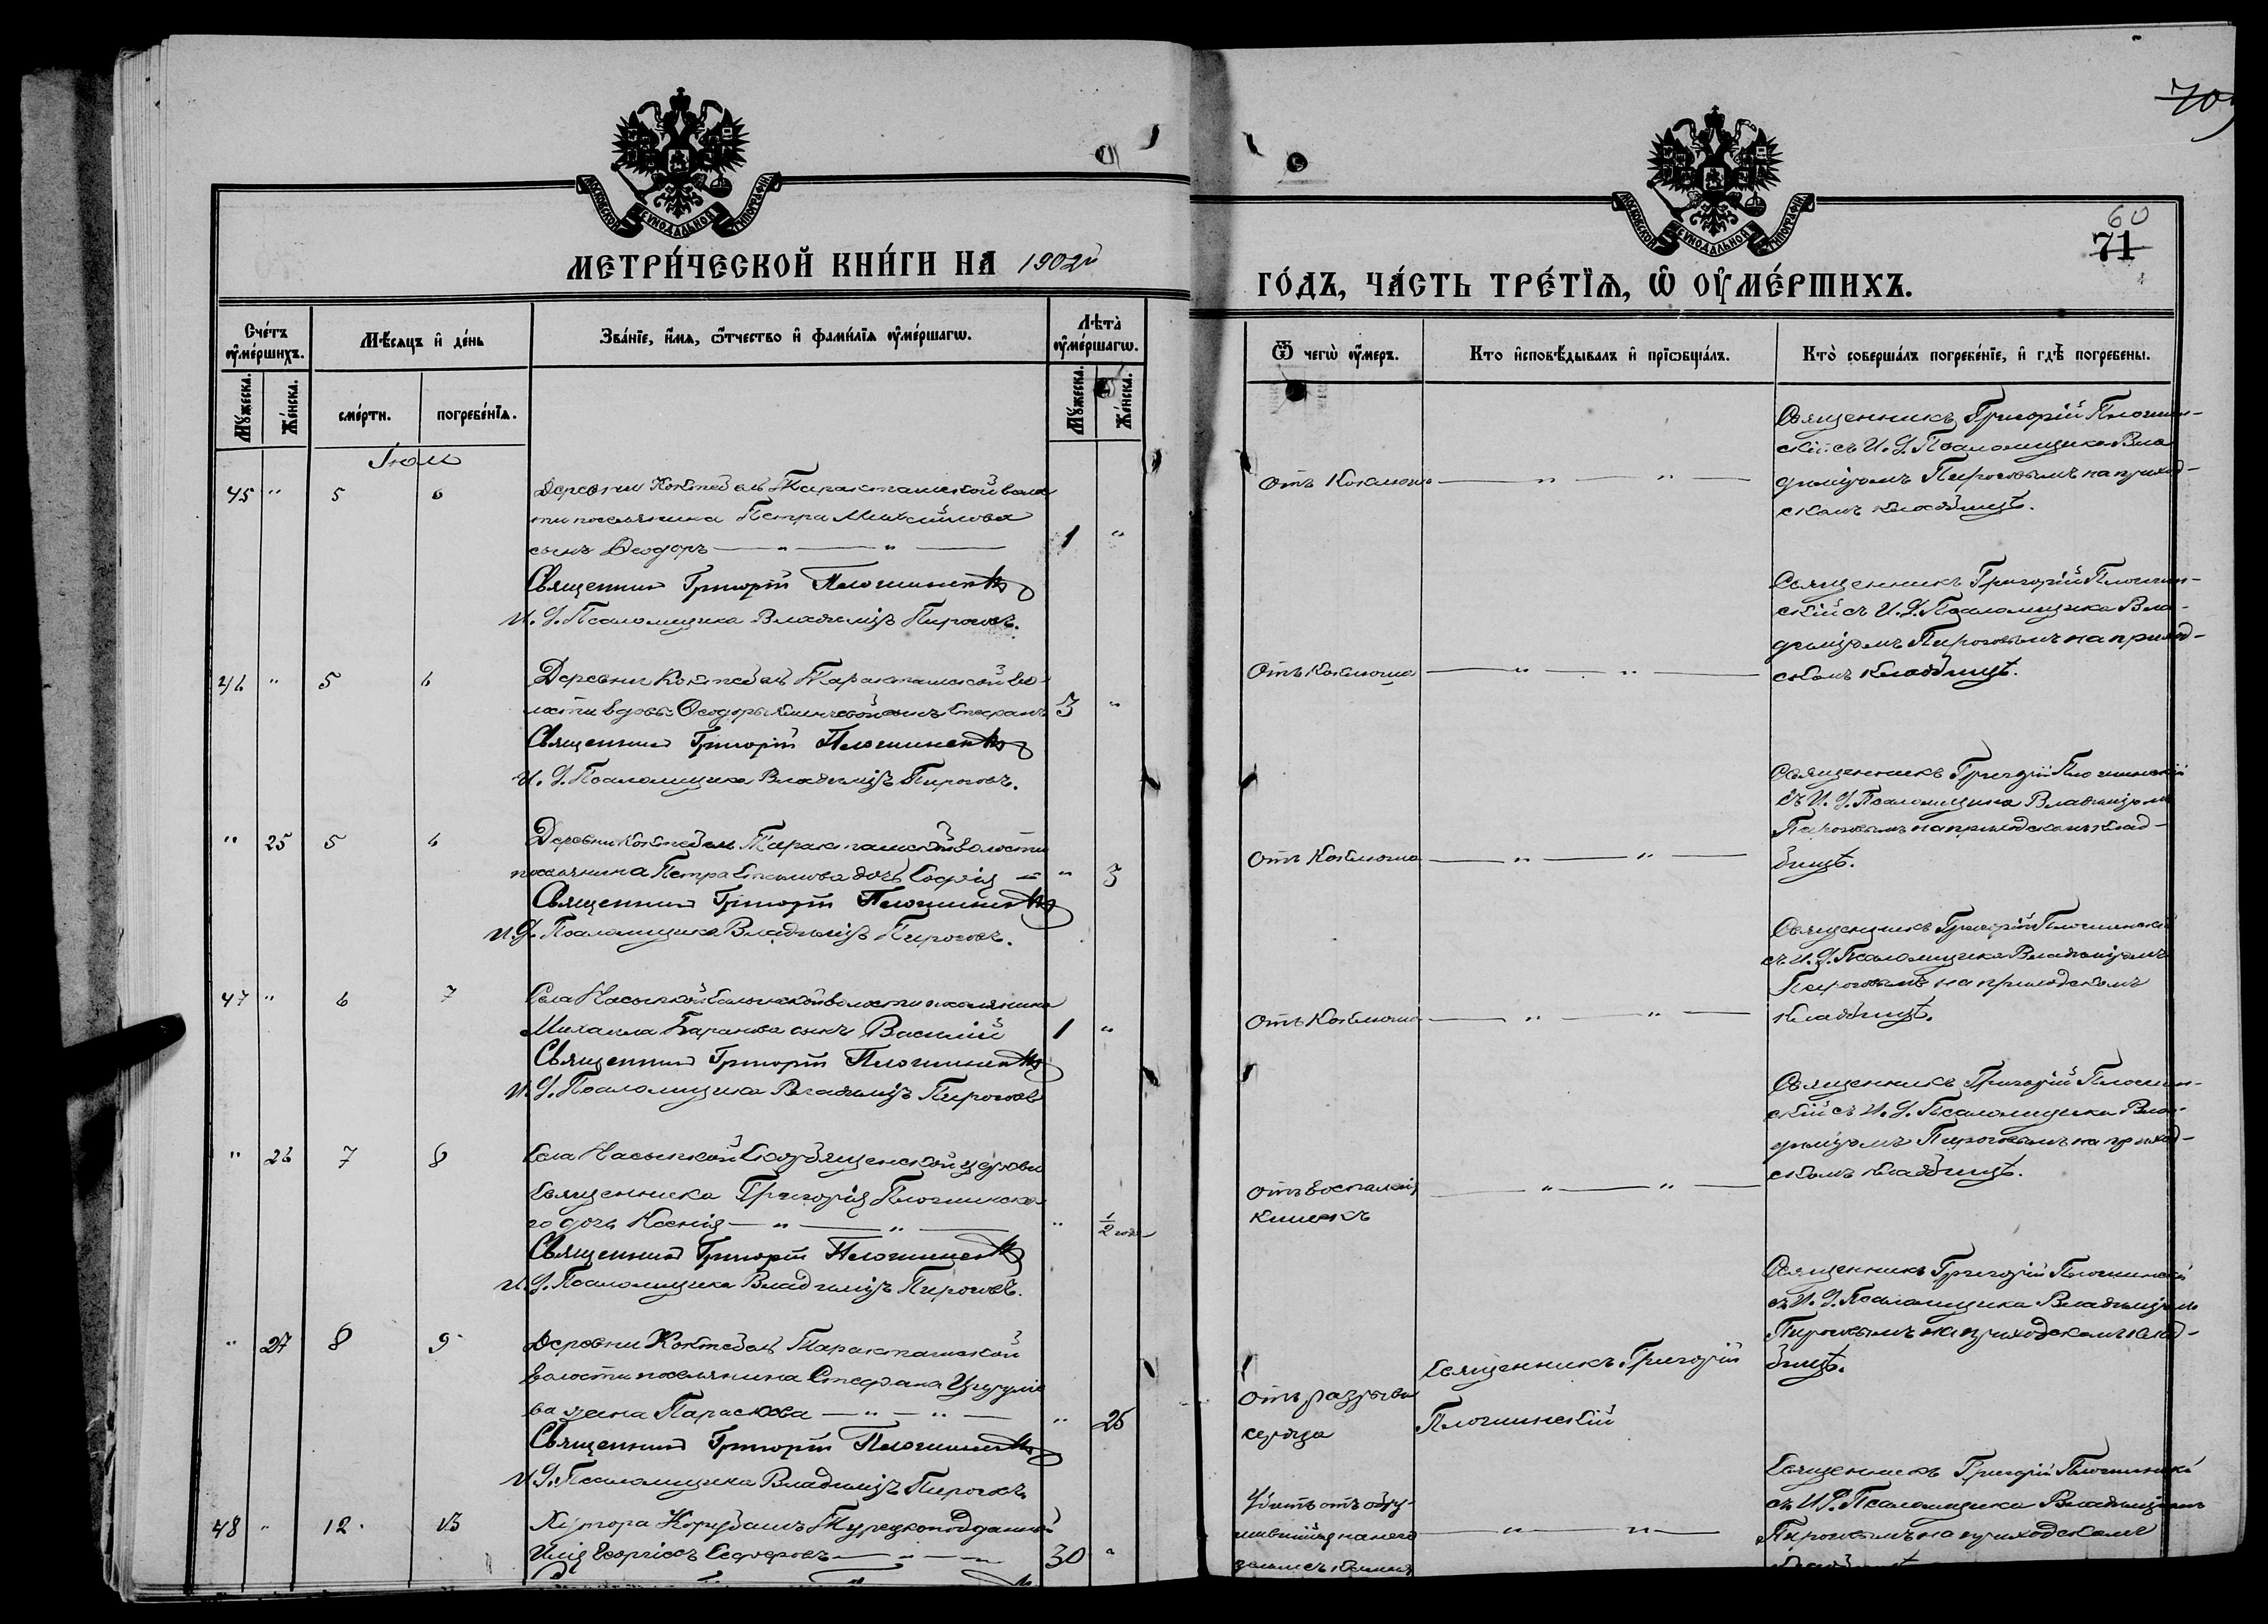 70
60
71
МОСКОВСКОЙ СѴНОДАЛЬНОЙ ТИПОГРАФІИ
МОСКОВСКОЙ СѴНОДАЛЬНОЙ ТИПОГРАФІИ
МЕТРИ́ЧЕСКОЙ КНИ́ГИ НА 1902й
ГО́ДЪ, ЧА́СТЬ ТРЕ́ТЇѦ, Ѽ ОУ҆МЕ́РШИХЪ.
Счетъ оумершихъ.
Мѣсяцъ и день
Званіе, имя, отчество и фамилія оумершагѡ.
Лѣта оумершагѡ.
Ѿ чегѡ оумеръ.
Кто исповѣдывалъ и пріобщалъ.
Кто совершалъ погребеніе, и гдѣ погребены.
Мужеска.
Женска.
смерти.
погребенія.
Мужеска.
Женска.
Іюль
45 " 5 6
Деревни Коктебель Таракташской волос
ти поселянина Петра Михайлова
сынъ Ѳеодоръ — " — " — 1 "
Священникъ Григорій Плогинскій
И. Д. Псаломщика Владиміръ Пироговъ.
Отъ Коклюша — " — " —
Священникъ Григорій Плогин-
скій съ И. Д. Псаломщика Вла
диміромъ Пироговымъ на приход-
скомъ кладбищѣ.
46 " 5 6
Деревни Коктебель Таракташской во-
лости вдовы Ѳеодоры сынъ Стефанъ 3 "
Священникъ Григорій Плогинскій
И. Д. Псаломщика Владиміръ Пироговъ.
Отъ Коклюша — " — " —
Священникъ Григорій Плогин-
скій съ И. Д. Псаломщика Вла-
диміромъ Пироговымъ на приход-
скомъ кладбищѣ.
" 25 5 6
Деревни Коктебель Таракташской волости
поселянина Петра Стоилова дочь Софія — " 3
Священникъ Григорій Плогинскій
И. Д. Псаломщика Владиміръ Пироговъ.
Отъ Коклюша — " — " —
Священникъ Григорій Плогинскій
съ И. Д. Псаломщика Владиміромъ
Пироговымъ на приходскомъ клад-
бищѣ.
47 " 6 7
Села Насыпкой волости поселянина
Михаила Баранова сынъ Василій 1 "
Священникъ Григорій Плогинскій
И. Д. Псаломщика Владиміръ Пироговъ
Отъ Коклюша — " — " —
Священникъ Григорій Плогинскій
съ И. Д. Псаломщика Владиміромъ
Пироговымъ на приходскомъ
кладбищѣ.
" 26 7 8
Села Насыпкой церкви
Священника Григорія Плогинска
го дочь Ксенія — " — " — " 1/2 года
Священникъ Григорій Плогинскій
И. Д. Псаломщика Владиміръ Пироговъ.
Отъ воспаленія — " — " —
кишекъ
Священникъ Григорій Плогин-
скій съ И. Д. Псаломщика Вла-
диміромъ Пироговымъ на приход-
скомъ кладбищѣ.
" 27 8 9
Деревни Коктебель Таракташской
волости поселянина Стефана
ва жена Параскева — " — " — " 25
Священникъ Григорій Плогинскій
И. Д. Псаломщика Владиміръ Пироговъ.
Отъ разрыва
сердца
Священникъ Григорій
Плогинскій
Священникъ Григорій Плогинскій
съ И. Д. Псаломщика Владиміромъ
Пироговымъ на приходскомъ клад-
бищѣ.
48 " 12 13
Хутора Турецкоподданный
Илія Георгіевъ — " — 30 "
Убитъ отъ обру-
шившейся на него — " — " —
земли съ камня
Священникъ Григорій Плогинскій
съ И. Д. Псаломщика Владиміромъ
Пироговымъ на приходскомъ